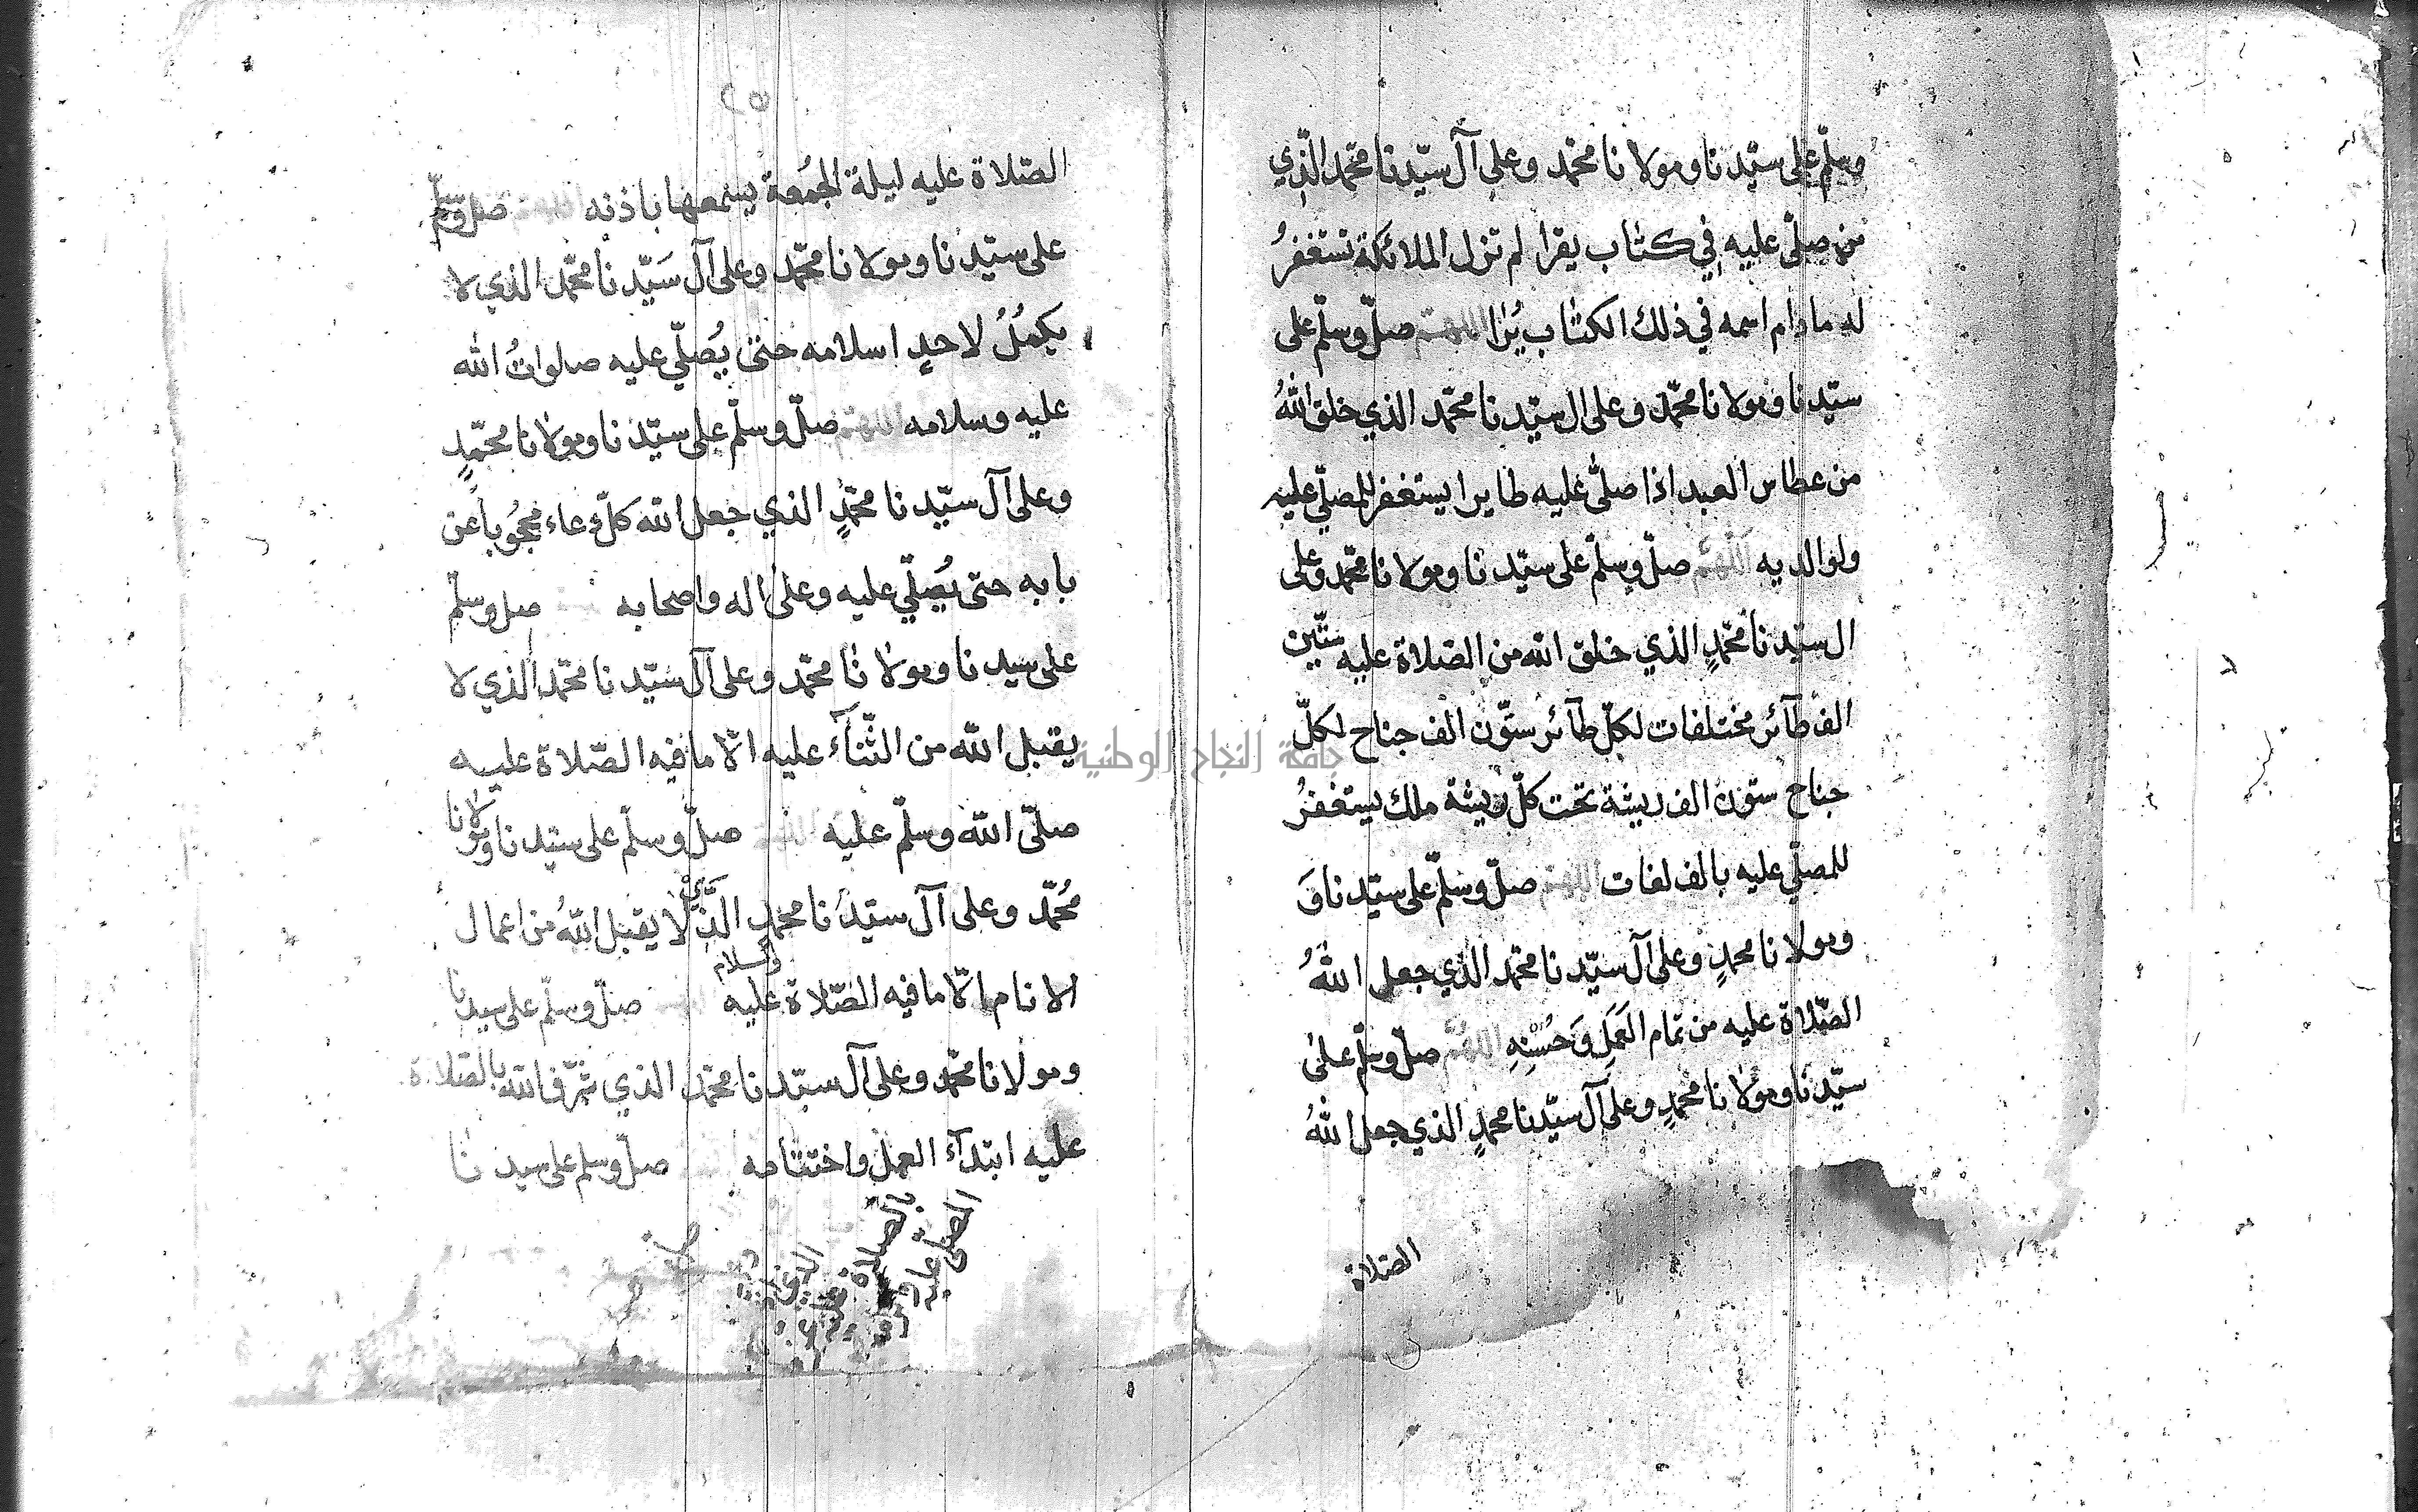 وسلّم على سيّدنا ومولانا محمّد وعلى آل سيّدنا محمّد الّذي
من صلّى عليه في كتاب يقرا لم تزل الملائكة تستغفرُ
له مادام اسمه في ذلك الكتاب يُرا اللهمّ صلّ وسلّم على
سيّدنا ومولانا محمّد وعلى ال سيّدنا محمّد الذي خلق اللهُ
من عطاس العبد اذا صلّى عليه طايرا يستغفر للمصلّي عليه
ولوالديه اللّهمَّ صلّ وسلّم على سيّدنا ومولانا محمّد وعلى
ال سيّدنا محمّدٍ الذي خلق الله من الصّلاة عليه ستّين
الف طآئر مختلفات لكلّ طآئر ستّون الف جناح لكلّ
جناح ستون الف ريشة تحت كلّ ريشة ملك يستغفرُ
للمصلّي عليه بالف لغات اللهمّ صلّ وسلّم على سيّدنا وَ
ومولانا محمدٍ وعلى آل سيّدنا محمّد الذي جعل اللهُ
الصّلاة عليه من تمام العَمَلِ وَحُسْنِهِ اللهُمَّ صلّ وسلّم على
سيّدنا ومولانا محمدٍ وعلى آل سيّدنا محمدٍ الذي جعل اللهُ
الصّلاة
٢٥
الصّلاة عليه ليلة الجُمُعة يسمعها باذنه اللهمّ صلّ وسلّم
على سيّدنا ومولانا محمّد وعلى آل سَيّدنا محمّد الذي لا
يكمُلُ لاحدٍ اسلامه حتى يُصلّي عليه صلواتُ الله
عليه وسلامه اللهمّ صلّ وسلّم على سيّدنا ومولانا محمّدٍ
وعلى آل سيّدنا محمّدٍ الذي جعل الله كلّ دعاء محجُوباً عن
بابه حتى يُصلّي عليه وعلى اله واصحابه صل وسلّم
على سيدنا ومولانا محمّد وعلى آل سيّدنا محمّد الذي لا
يقبل الله من الثّنآء عليه الّا ما فيه الصّلاة عليه
صلّى الله وسلّم عليه اللهم صلّ وسلّم على سيّدنا ومولانا
مُحمّد وعلى آل سيّدنا محمدٍ الَّذي لا يقبل اللهُ من اعمال
الانام الّا ما فيه الصّلاة عليه والسلام صلّ وسلّم على سيدنا
ومولانا محمّد وعلى آل سيّدنا محمّد الذي شرّف الله بالصّلاة
عليه ابتدآء العمل واختتامه صلّ وسلم على سيدنا
جامعة النجاح الوطنية